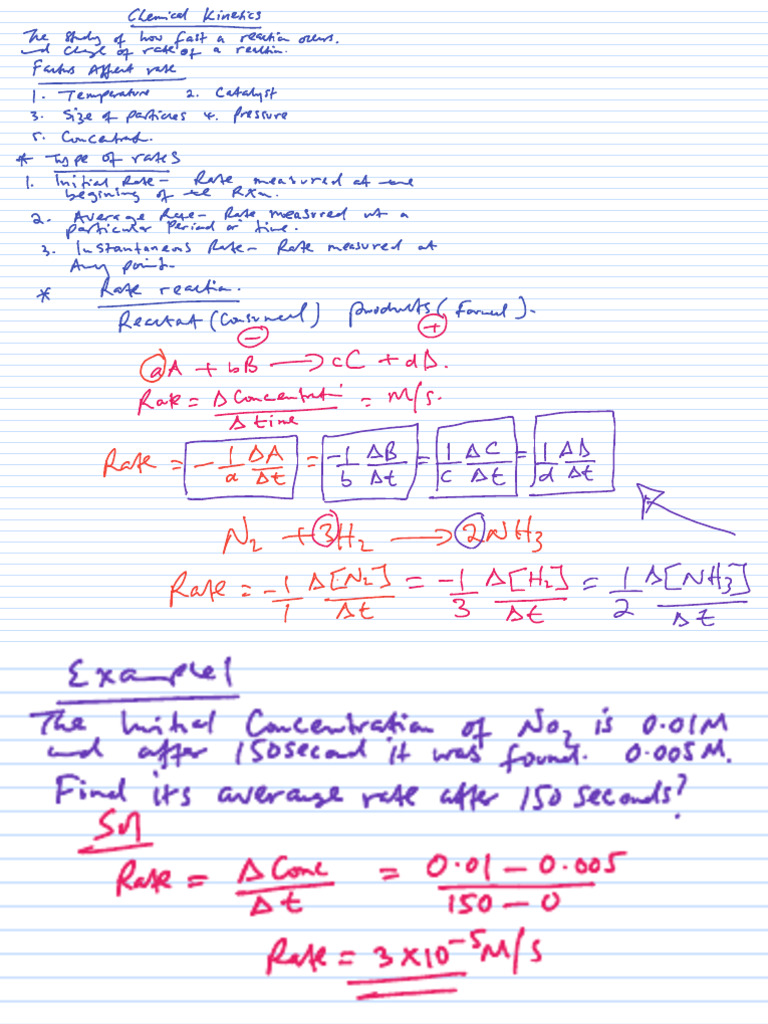 Chemical Kinetics
The study of how fast a reaction occurs.
and change of rate of a reaction.
Factors Affect rate
1. Temperature 2. Catalyst
3. Size of particles 4. Pressure
5. Concentrat.
* Type of rates
1. Initial Rate - Rate measured at the
begining of the Rxn.
2. Average Rate - Rate measured at a
particular period or time.
3. Instantaneous Rate - Rate measured at
Any point.
* Rate reaction.
Reactat (Consumed) products (formed).
- +
aA + bB → cC + dD.
Rate = Δ Concentrati / Δ time = M/s.
Rate = -1/a ΔA/Δt = -1/b ΔB/Δt = 1/c ΔC/Δt = 1/d ΔD/Δt
N₂ + 3H₂ → 2NH₃
Rate = -1/1 Δ[N₂]/Δt = -1/3 Δ[H₂]/Δt = 1/2 Δ[NH₃]/Δt
Example 1
The Initial Concentration of NO₂ is 0.01M
and after 150second it was found. 0.005M.
Find its average rate after 150 seconds?
Sol
Rate = Δ Conc / Δt = 0.01 - 0.005 / 150 - 0
Rate = 3×10⁻⁵ M/s